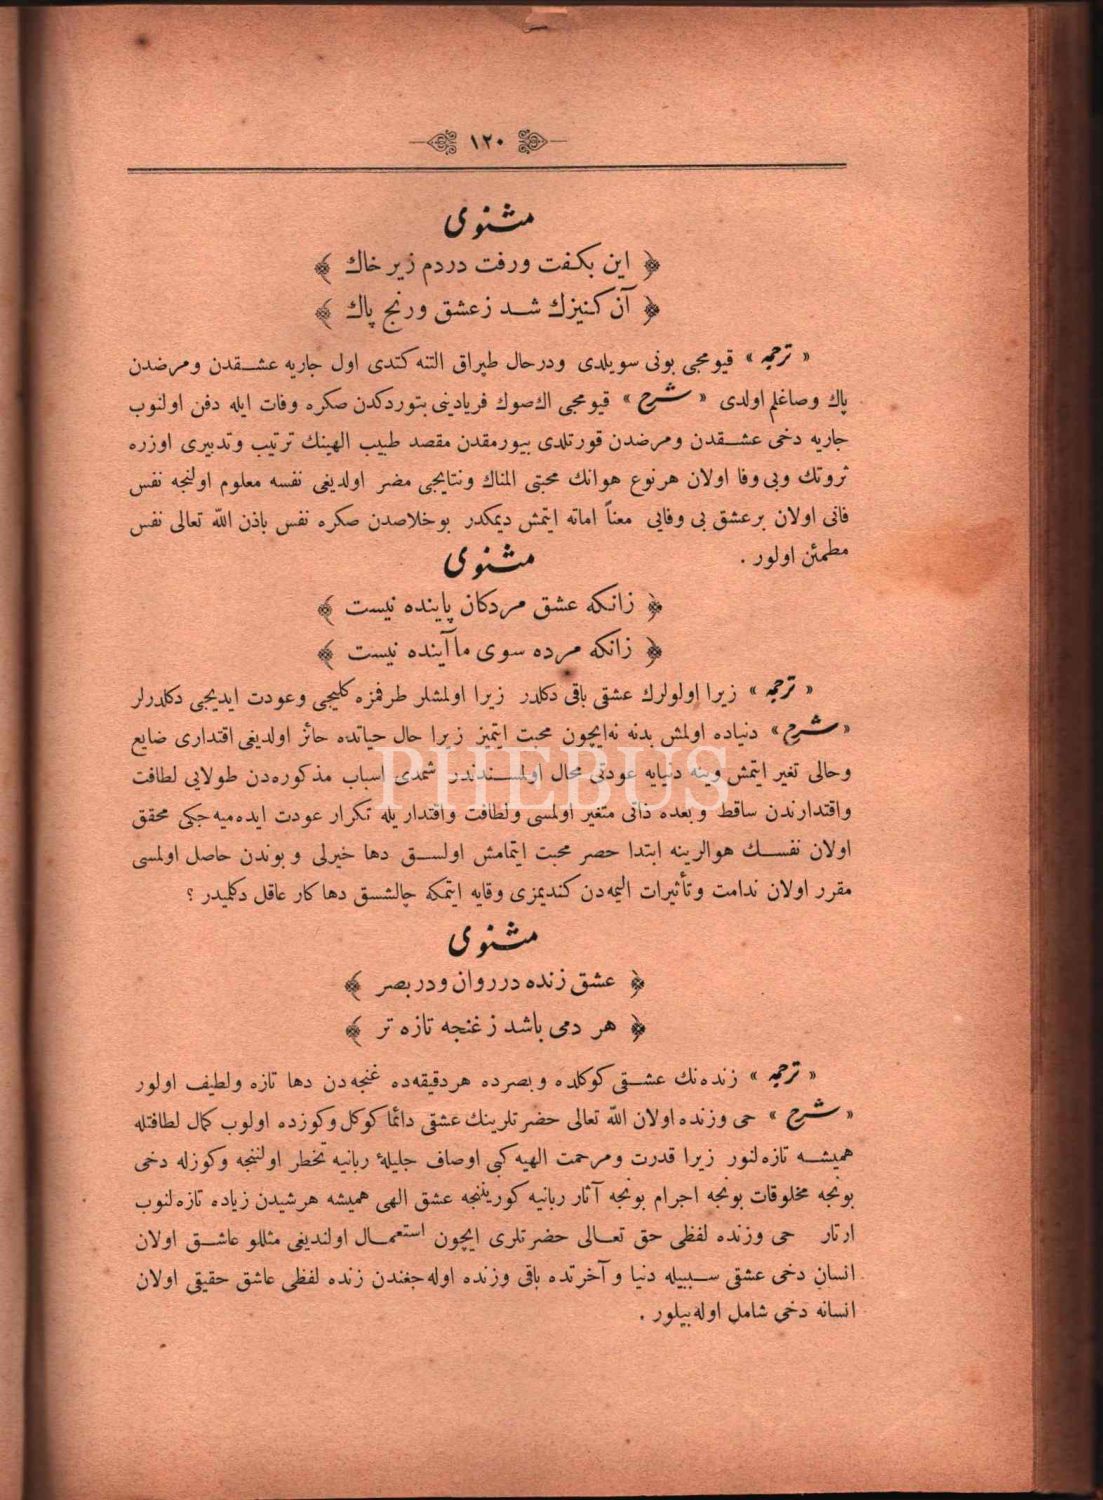 ١٢٠
مثنوى
﴿ اين بكفت ورفت دردم زير خاك ﴾
﴿ آن كنيزك شد زعشق ورنج پاك ﴾
« ترجمه » قيومجى بونى سويلدى ودرحال طپراق التنه كتدى اول جاريه عشقدن ومرضدن
پاك وصاغلم اولدى « شرح » قيومجى اك صوك فريادينى بتوردكدن صكره وفات ايله دفن اولنوب
جاريه دخى عشقدن ومرضدن قورتلدى بيورمقدن مقصد طبيب الهينك ترتيب وتدبيرى اوزره
ثروتك وبى وفا اولان هرنوع هوانك محبتى المناك ونتايجى مضر اولديغى نفسه معلوم اولنجه نفس
فانى اولان برعشق بى وفايى معناً اماته ايتمش ديمكدر بوخلاصدن صكره نفس باذن الله تعالى نفس
مطمئن اولور .
مثنوى
﴿ زانكه عشق مردكان پاينده نيست ﴾
﴿ زانكه مرده سوى ما آينده نيست ﴾
« ترجمه » زيرا اولولرك عشقى باقى دكلدر زيرا اولمشلر طرفمزه كليجى وعودت ايديجى دكلدرلر
« شرح » دنياده اولمش بدنه نه ايچون محبت ايتميز زيرا حال حياتده حائز اولديغى اقتدارى ضايع
وحالى تغير ايتمش وينه دنيايه عودتى محال اولسندندر شمدى اسباب مذكوره دن طولايى لطافت
واقتدارندن ساقط وبعده ذاتى متغير اولمسى ولطافت واقتدار يله تكرار عودت ايده ميه جكى محقق
اولان نفسك هوالرينه ابتدا حصر محبت ايتمامش اولسق دها خيرلى وبوندن حاصل اولمسى
مقرر اولان ندامت وتأثيرات اليمه دن كنديمزى وقايه ايتمكه چالشسق دها كار عاقل دكلميدر ؟
مثنوى
﴿ عشق زنده در روان ودر بصر ﴾
﴿ هر دمى باشد ز غنجه تازه تر ﴾
« ترجمه » زنده نك عشقى كوكلده وبصرده هردقيقه ده غنجه دن دها تازه ولطيف اولور
« شرح » حى وزنده اولان الله تعالى حضرتلرينك عشقى دائما كوكل وكوزده اولوب كمال لطافتله
هميشه تازه لنور زيرا قدرت ومرحمت الهيه كبى اوصاف جليلهٔ ربانيه تخطر اولننجه وكوزله دخى
بونجه مخلوقات بونجه اجرام بونجه آثار ربانيه كورينجه عشق الهى هميشه هرشيدن زياده تازه لنوب
ارتار حى وزنده لفظى حق تعالى حضرتلرى ايچون استعمال اولنديغى مثللو عاشق اولان
انسان دخى عشقى سببيله دنيا و آخرتده باقى وزنده اوله جغندن زنده لفظى عاشق حقيقى اولان
انسانه دخى شامل اوله بيلور .
PHEBUS